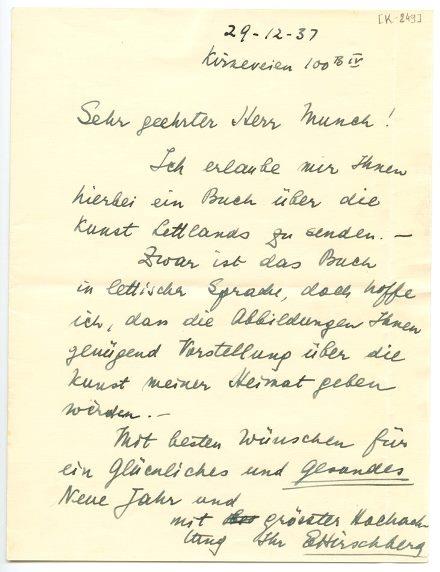 [K-249]
29-12-37
Kirkeveien 100B IV
Sehr geehrter Herr Munch!
Ich erlaube mir Ihnen
hierbei ein Buch über die
Kunst Lettlands zu senden.—
Zwar ist das Buch
in lettischer Sprache, doch hoffe
ich, dass die Abbildungen Ihnen
genügend Vorstellung über die
Kunst meiner Heimat geben
werden.—
Mit besten Wünschen für
ein Glückliches und Gesundes
Neue Jahr und
mit grösster Hochach
tung Ihr Hirschberg